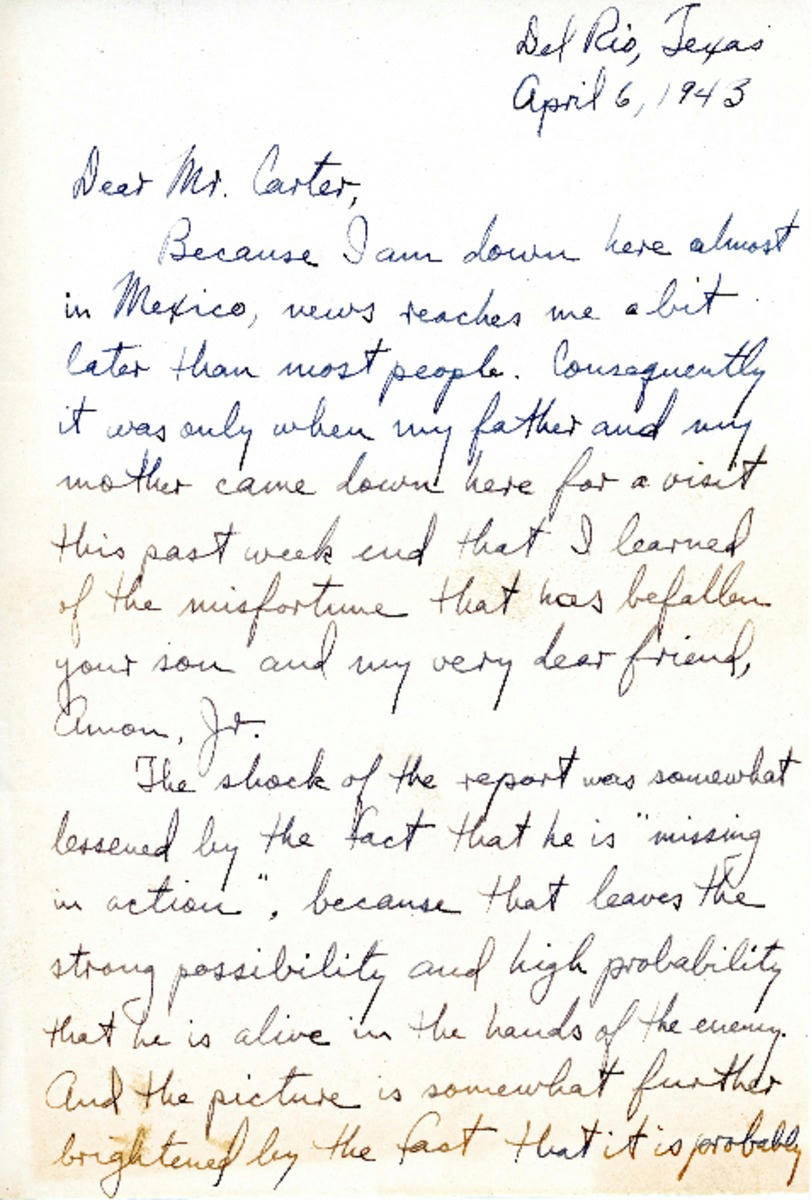 Del Rio, Texas
April 6, 1943
Dear Mr. Carter,
Because I am down here almost
in Mexico, news reaches me a bit
later than most people. Consequently
it was only when my father and my
mother came down here for a visit
this past week end that I learned
of the misfortune that has befallen
your son and my very dear friend,
Amon, Jr.
The shock of the report was somewhat
lessened by the fact that he is "missing
in action", because that leaves the
strong possibility and high probability
that he is alive in the hands of the enemy.
And the picture is somewhat further
brightened by the fact that it is probably